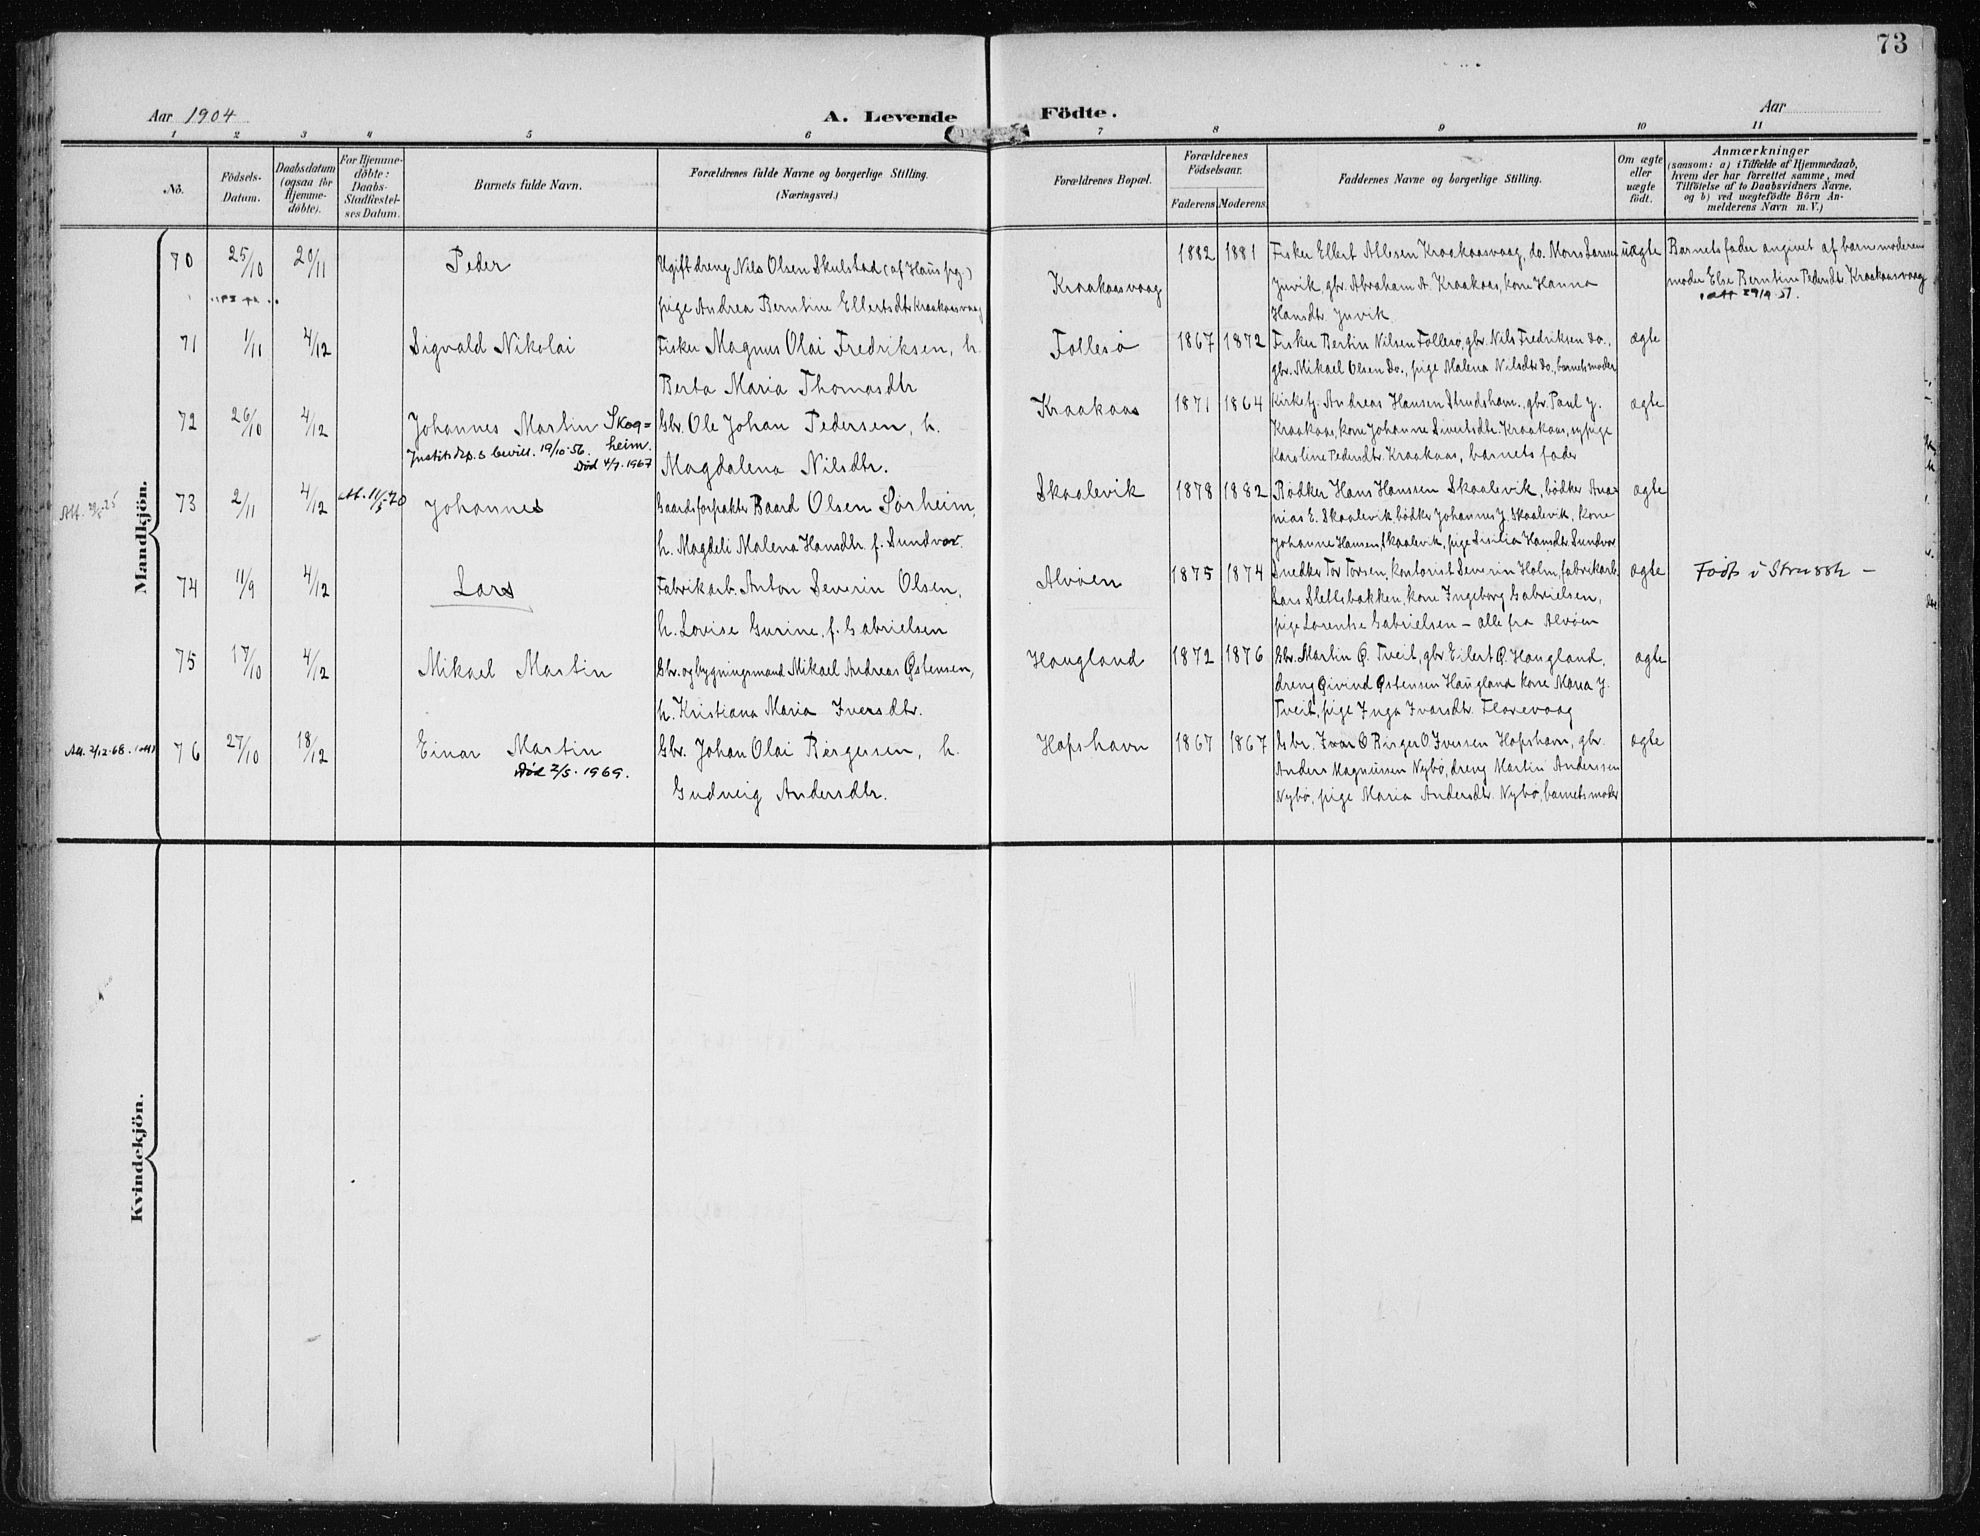 73
Aar 1904
A. Levende Födte.
Aar
1 2 3 4 5 6 7 8 9 10 11
Nö.
Födsels-Datum.
Daabsdatum (ogsaa for Hjemme-döbte).
For Hjemme-döbte: Daabs-Stadfæstel-ses Datum.
Barnets fulde Navn.
Forældrenes fulde Navne og borgerlige Stilling. (Næringsvei.)
Forældrenes Bopæl.
Forældrenes Födselsaar.
Faderens. Moderens.
Faddernes Navne og borgerlige Stilling.
Om ægte eller uægte født.
Anmærkninger
(saasom: a) i Tilfælde af Hjemmedaab,
hvem der har forrettet samme, med
Tilföielse af to Daabsvidners Navne,
og b) ved uægtefödte Börn An-
melderens Navn m. V.)
Mandkjön.
70 25/10 20/11 Peder
Ugift dreng Nils Olsen Skulstad (af Haus pg.)
pige Andrea Berntine Ellertsdtr Kraakaasvaag
Kraakaasvaag 1882 1881
Fisker Ellert Atlesen Kraakaasvaag, do. Mons Larsen
Juvik, gbr. Abraham A. Kraakaas, kone Hanna
Hansdtr. Juvik
uægte
Barnets fader angivet af barnemoderens
moder Else Berntine Pedersdtr. Kraakaasvaag
71 1/11 4/12 Sigvald Nikolai
Fisker Magnus Olai Fredriksen, h.
Berta Maria Thomasdtr
Follesö 1867 1872
Fisker Bertin Nilsen Follesö, gbr. Nils Fredriksen do.,
gbr. Mikael Olsen do., pige Malena Nilsdtr do., barnets moder
ægte
72 26/10 4/12 Johannes Martin Skog=
heim.
Justitsdep.s bevill. 19/10-56.
Död 4/7.1967
Gbr. Ole Johan Pedersen, h.
Magdalena Nilsdtr.
Kraakaas 1871 1864
Kirketj. Andreas Hansen Strudshavn, gbr. Paul J.
Kraakaas, kone Johanne Sivertsdtr. Kraakaas, sypige
Karoline Pedersdtr. Kraakaas, barnets fader
ægte
73 2/11 4/12 Johannes
Gaardsforpakter Baard Olsen Sörheim,
h. Magdeli Malena Hansdtr. f. Sundvor.
Skaalevik 1878 1882
Bødker Hans Hanssen Skaalevik, bødker Ana=
nias E. Skaalevik, bödker Johannes J. Skaalevik, kone
Johanne Hansen, Skaalevik, pige Sisilia Hansdtr. Sundvor
ægte
74 11/9 4/12 Lars
Fabrikarb. Anton Severin Olsen,
h. Lovise Gurine, f. Gabrielsen
Alvöen 1875 1874
Snedker Tor Torsen, kontorist Severin Holm, fabrikarb.
Lars Slettebakken, kone Ingeborg Gabrielsen,
pige Lorentse Gabrielsen – alle fra Alvöen
ægte
Født i
75 17/10 4/12 Mikael Martin
Gbr. og bygningsmand Mikael Andreas Østensen,
h. Kristiana Maria Iversdtr.
Haugland 1872 1876
Gbr. Martin Ø. Tveit, gbr. Eilert Ø. Haugland,
dreng Øivind Østensen Haugland kone Maria J.
Tveit, pige Inga Ivarsdtr. Florevaag
ægte
76 27/10 18/12 Einar Martin
Död 2/5.1969.
Gbr. Johan Olai Børgesen, h.
Gudveig Andersdtr.
Hopshavn 1867 1867
Gbr. Ivar O. Birger O. Iversen Hopshavn, gbr.
Anders Magnussen Nybö, dreng Martin Anderssen
Nybö, pige Maria Andersdtr. Nybö, barnets moder
ægte
Kvindekjön.